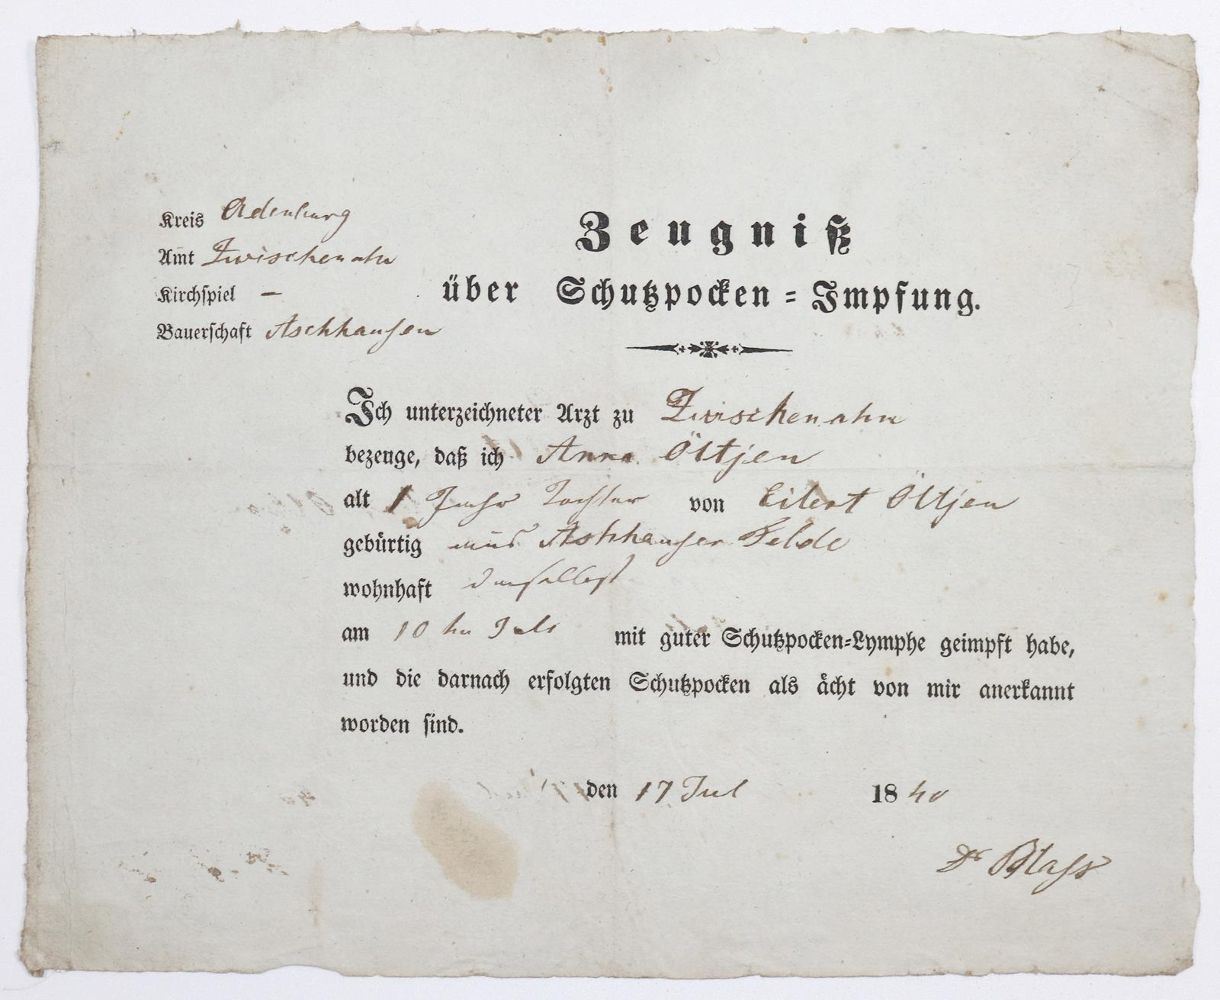 Kreis Oldenburg
Amt Zwischenahn
Kirchspiel –
Bauerschaft Aschhausen
Zeugniß
über Schutzpocken-Impfung.
Ich unterzeichneter Arzt zu Zwischenahn
bezeuge, daß ich Anna Öltjen
alt 1 Jahr Tochter von Eilert Öltjen
gebürtig aus Aschhauser Felde
wohnhaft daselbst
am 10 Juli mit guter Schutzpocken-Lymphe geimpft habe,
und die darnach erfolgten Schutzpocken als ächt von mir anerkannt
worden sind.
den 17 Jul 1840
Dr Blass